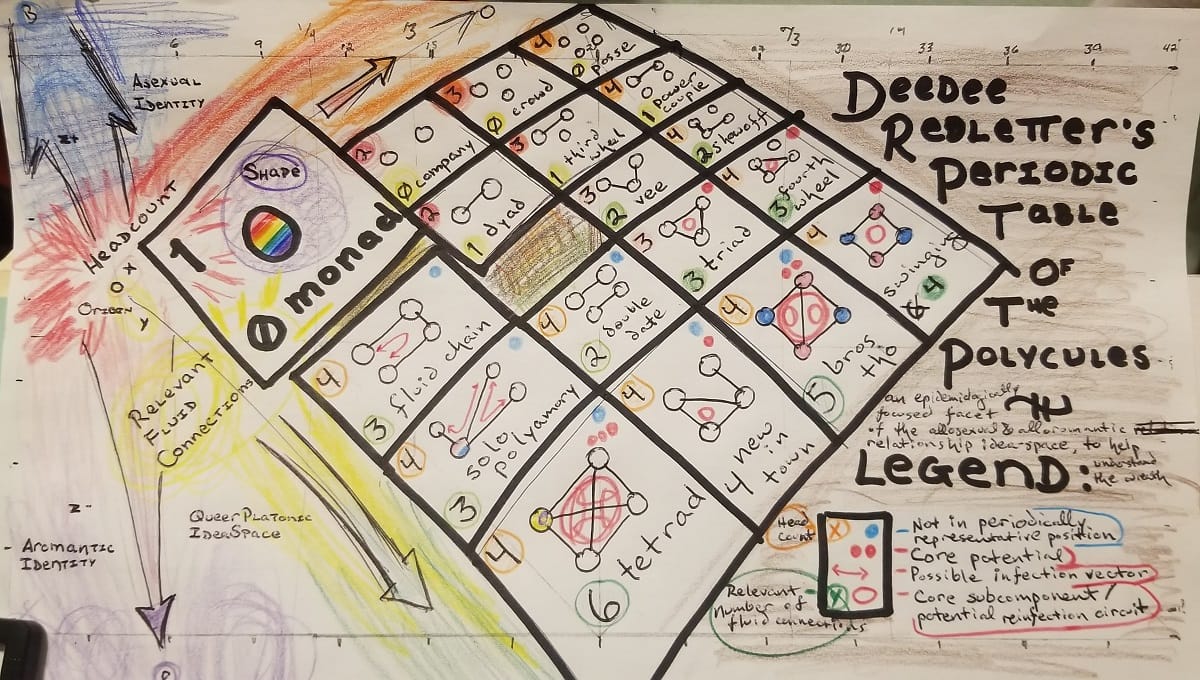 B
6
9
1/4
12
13
15
27
7/3
30
14
33
36
39
42
Asexual
Identity
Z+
Headcount
X
O
Origin
Y
Relevant
Fluid
Connections
Z-
Aromantic
Identity
QueerPlatonic
IdeaSpace
Shape
1
0 monad
4
0 posse
3
0 crowd
4
1 power
couple
2
0 company
3
1 third
wheel
4
2 showoff
2
1 dyad
3
2 vee
4
3 fourth
wheel
3
3 triad
4
swinging
4
4
3 fluid chain
4
2 double
date
4
5 bros
tho
4
3 solo
polyamory
4
4 new
in
town
4
6
tetrad
Deedee
Redletter's
Periodic
Table
of
The
Polycules
an epidemiologically
focused facet
of the allosexual & alloromantic
relationship idea-space, to help
understand
the wreath
Legend:
Head
Count
X
Not in periodically
representative position
Core potential
Possible infection vector
Core subcomponent/
potential reinfection circuit
Relevant
number of
fluid connections
X